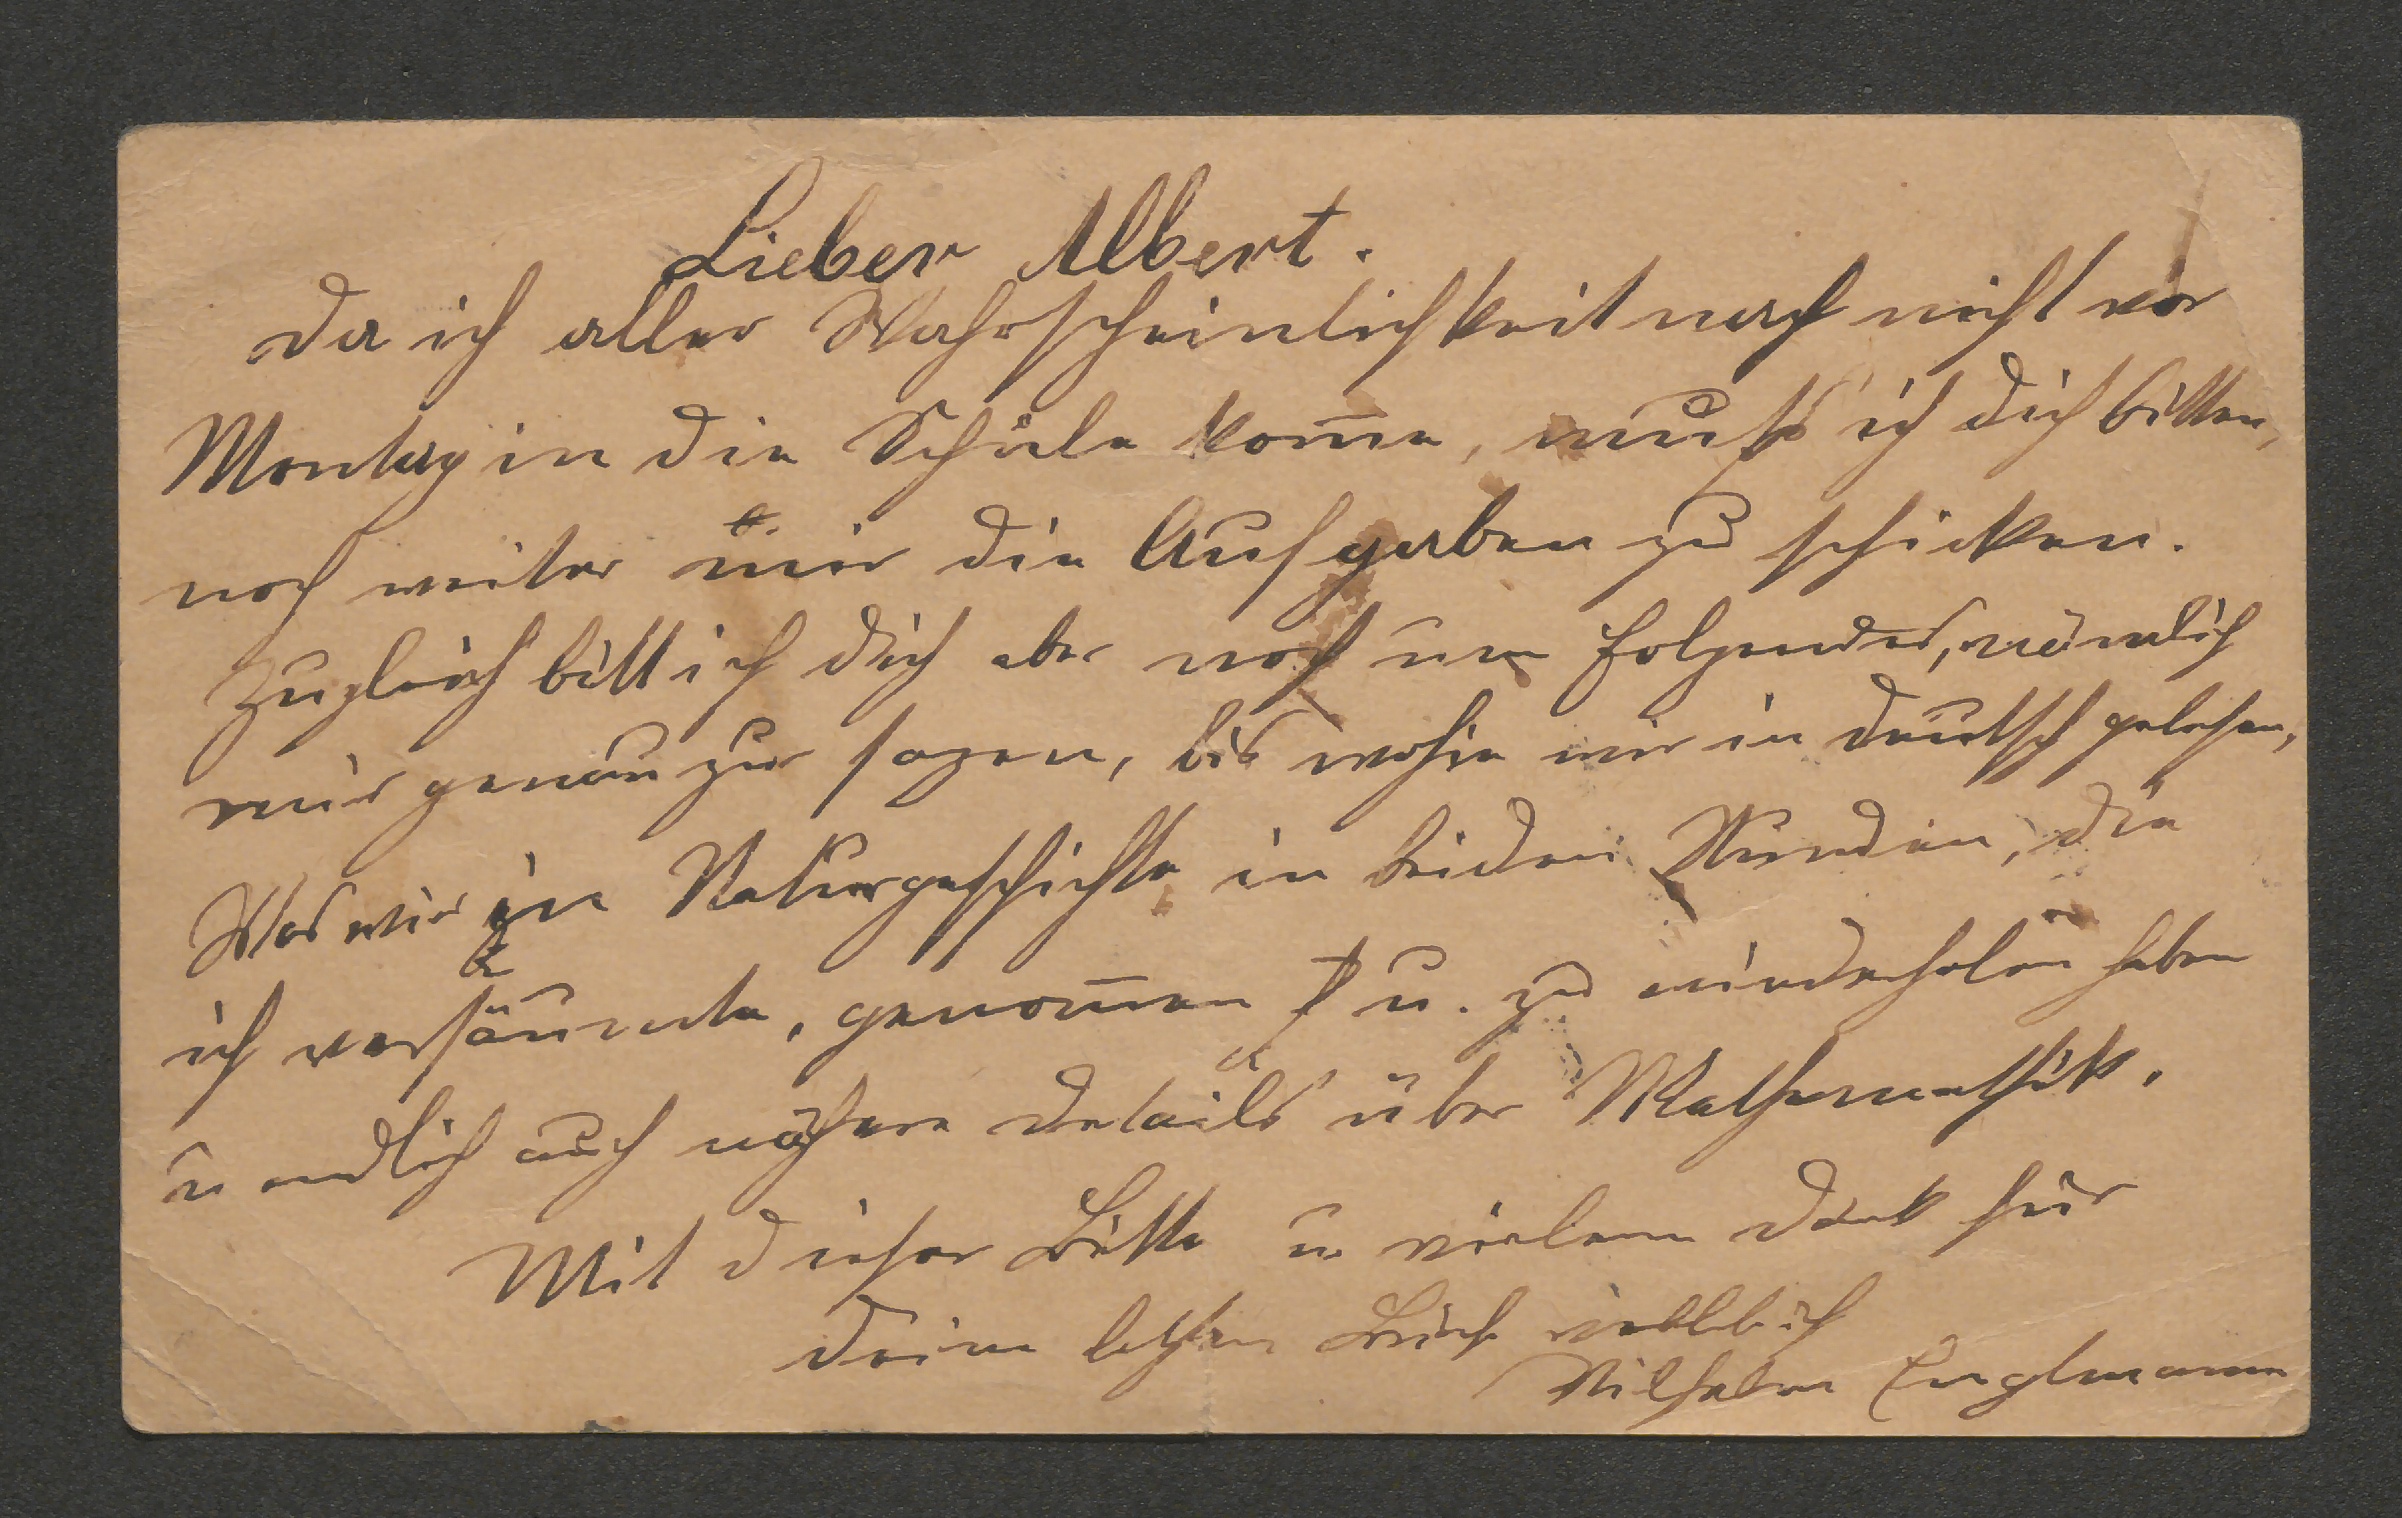 Lieber Albert.
Da ich aller Wahrscheinlichkeit nach nicht vor
Montag in die Schule kom̄e, muß ich dich bitten,
noch weiter mir die Aufgaben zu schicken.
Zugleich bitt ich dich aber noch um folgendes, nämlich
mir genau zu sagen, bis wohin wir in Deutsch gelesen,
Was wir in Naturgeschichte in beiden Stunden, die
ich versäumte, genom̄en u. zu wiederholen haben
u endlich auch nähere Details über Mathemathik.
Mit dieser Bitte u. vielem Dank für
deine letzten Briefe
Wilhelm Englmann